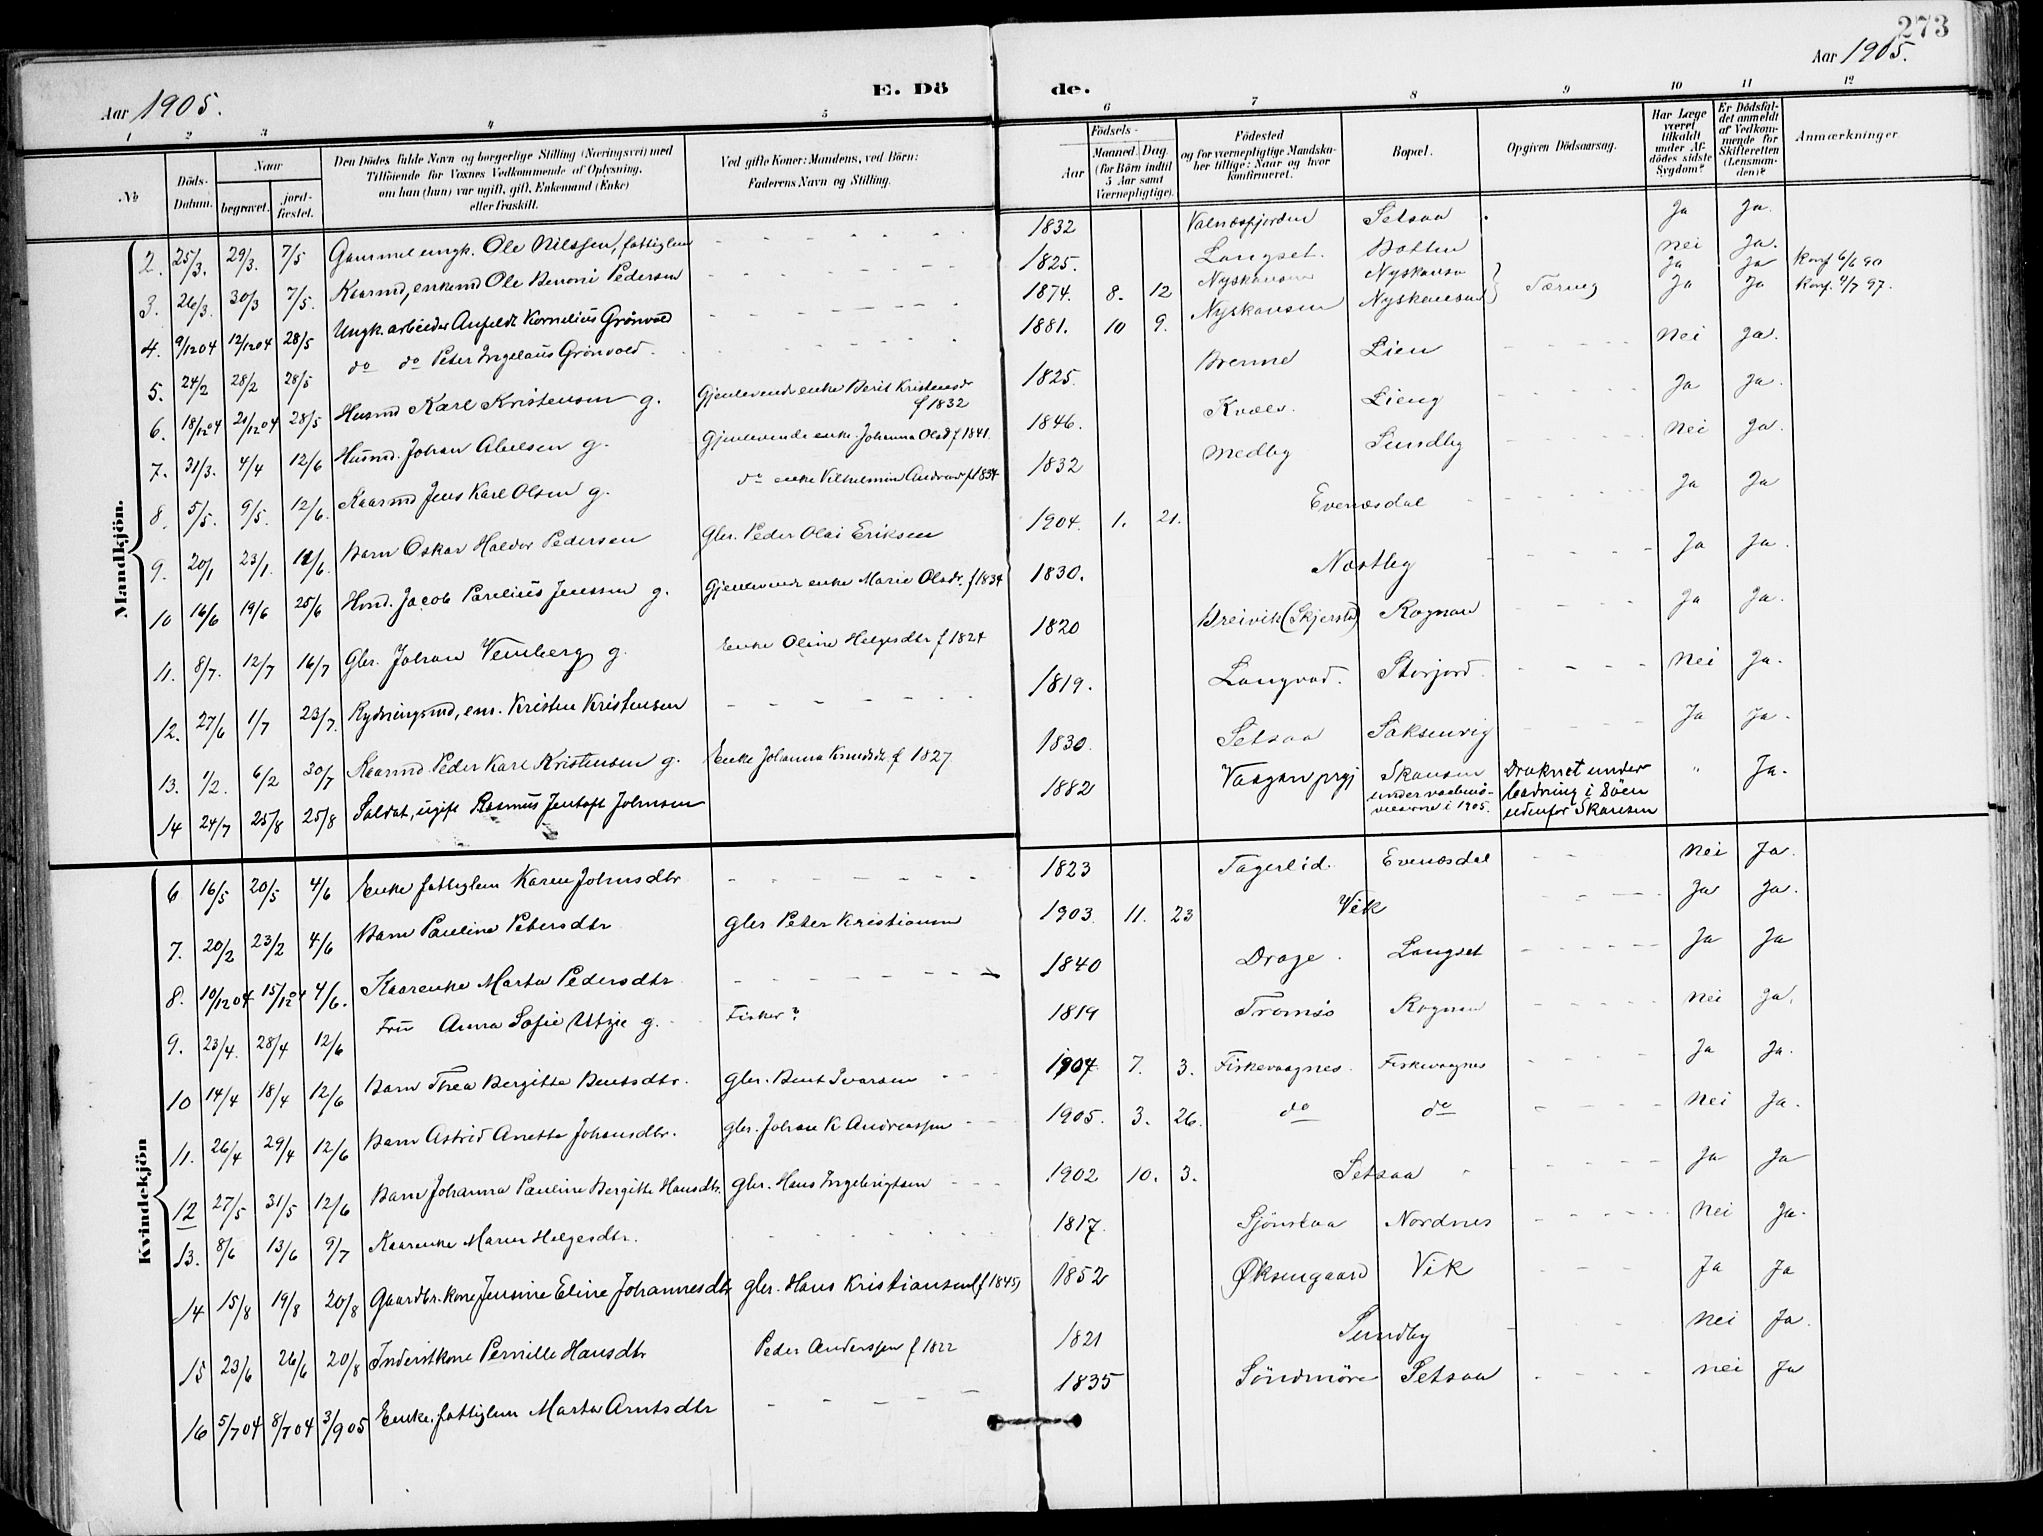 273
Aar 1905. E. Dö de. Aar 1905.
1 2 3 4 5 6 7 8 9 10 11 12
No.
Döds-Datum.
Naar
begravet. jord-fæstet.
Den Dödes fulde Navn og borgerlige Stilling (Næringsvei) med
Tilföiende for Voxnes Vedkommende af Oplysning,
om han (hun) var ugift, gift, Enkemand (Enke)
eller fraskilt.
Ved gifte Koner: Mandens, ved Börn:
Faderens Navn og Stilling.
Födsels-
Aar Maaned. Dag.
(for Börn indtil
5 Aar samt
Værnepligtige).
Födested
og for værnepligtige Mandska-
ber tillige: Naar og hvor
konfirmeret.
Bopæl.
Opgiven Dödsaarsag.
Har Læge
været
tilkaldt
under Af-
dödes sidste
Sygdom?
Er Dödsfal-
det anmeldt
af Vedkom-
mende for
Skifteretten
(Lensman-
den)?
Anmærkninger
Mandkjön.
2. 25/3. 29/3. 7/5 Gammel ungk. Ole Nilssen, fattiglem - - - 1832 Valnæsfjorden Setsaa Ja Ja.
3. 26/3. 30/3 7/5. Kaarmd, enkemd Ole Benoni Pedersen - - - 1825. Langset. Botten Nei Ja.
4. 9/12 04 12/12 04 28/5 Ungk. arbeider Anfeldt Kornelius Grönvold - - - 1874. 8. 12 Nyskansen Nyskansen } Tæring Ja Ja Konf 6/6 90
5. 24/2 28/2 28/5 do do Peter Ingelaus Grönvold. - - - 1881. 10 9. Nyskansen Nyskansen Ja Ja Konf. 4/7 97.
6. 18/12 04 21/12 04 28/5 Husmd Karl Kristensen g. Gjenlevende enke Berit Kristensdr f 1832 1825. Brenne Lien - - - Nei Ja.
7. 31/3. 4/4 12/6 Husmd. Johan Abelsen g. Gjenlevende enke. Johanna Olsd f 1841. 1846. Kvæl. Lieng - - - Ja Ja.
8. 5/5. 9/5. 12/6. Kaarmd Jens Karl Olsen g. do enke Vilhelmine Andrsd f 1834 1832 Medby Sundby - - - Nei Ja.
9. 20/1 23/1. 12/6. Barn Oskar Haldor Pedersen Gbr. Peder Olai Eriksen 1904. 1. 21. Evenæsdal - - - Ja Ja
10 16/6 19/6 25/6 Hmd. Jacob Parelius Jenssen g. Gjenlevende enke Marie Olsdr. f 1834 1830. Næstby - - - Ja Ja.
11. 8/7. 12/7 16/7 Gbr. Johan Vemberg g. Enke Oline Helgesdtr f 1824 1820 Breivik (Skjerstd) Rognan - - - Ja Ja.
12. 27/6 1/7 23/7. Rydningsmd, em. Kristen Kristensen - - - 1819. Langvad. Storjord. - - - Nei Ja.
13. 1/2. 6/2 30/7 Kaarmd Peder Karl Kristensen g. Enke Johanna Knudsdr f 1827 1830. Setsaa Saksenvig - - - Ja Ja.
14 24/7 25/8 25/8 Soldat, ugift Rasmus Jentoft Johnsen 1882 Vaagan prgj Skansen
under vaabenö-
velserne i 1905.
Druknet under
badning i Söen
udenfor Skansen
" Ja.
Kvindekjön
6 16/5 20/5 4/6 Enke fattiglem Karen Johnsdtr - - - 1823 Tagerlid. Evenæsdal - - Nei Ja.
7. 20/2 23/2 4/6 Barn Pauline Petersdtr Gbr Peter Kristiansen 1903. 11. 23 Vik - - - Ja Ja.
8. 10/12 04 15/12 04 4/6. Kaarenke Marta Pedersdtr - - - 1840 Drage. Langset - - - Ja Ja
9. 23/4. 28/4 12/6 Fru Anna Sofie g. Fisker? 1819 Tromsö Rognan - - - Nei Ja.
10 14/4 18/4 12/6 Barn Thea Bergitte Bentsdtr. Gbr. Bent Ivarsen - - - 1904 7. 3. Fiskevaagnes. Fiskevagnes - - - Ja Ja.
11. 26/4 29/4 12/6 Barn Astrid Anetta Johansdtr. Gbr. Johan K Andreassen - - - 1905. 3. 26. do do - - - Nei Ja.
12 27/5 31/5 12/6 Barn Johanna Pauline Bergitte Hansdtr. Gbr. Hans Ingebrigtsen - - - 1902 10. 3. Setsaa - - - Ja Ja
13. 8/6 13/6 9/7 Kaarenke Maren Helgesdtr. - - - 1817. Sjönstaa Nordnes - - - Nei Ja.
14 15/8 19/8 20/8 Gaardbr.kone Jensine Eline Johannesdtr Gbr. Hans Kristiansen (f 1845) 1852 Øksengaard Vik - - - Ja Ja
15 23/6 26/6 20/8 Inderstkone Pernille Hansdtr Peder Anderssen f 1822 1821 Sundby Nei Ja.
16 5/7 04 8/7 04 3/9 05 Enke, fattiglem Marta Arntsdtr - - - 1835 Söndmöre Setsaa - - - Nei Ja